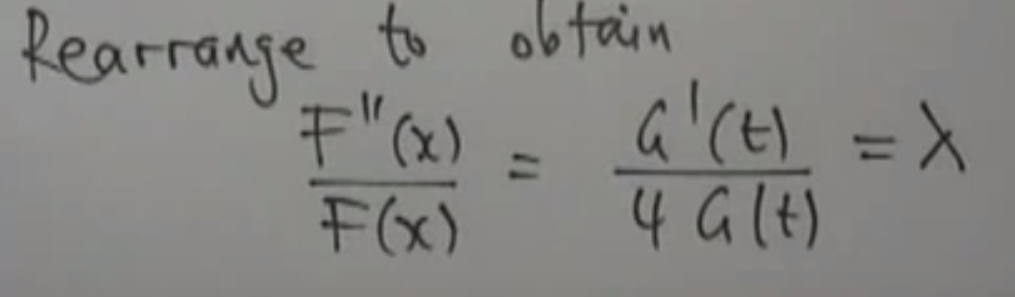 Rearrange to obtain
F''(x)/F(x) = G'(t)/4 G(t) = λ